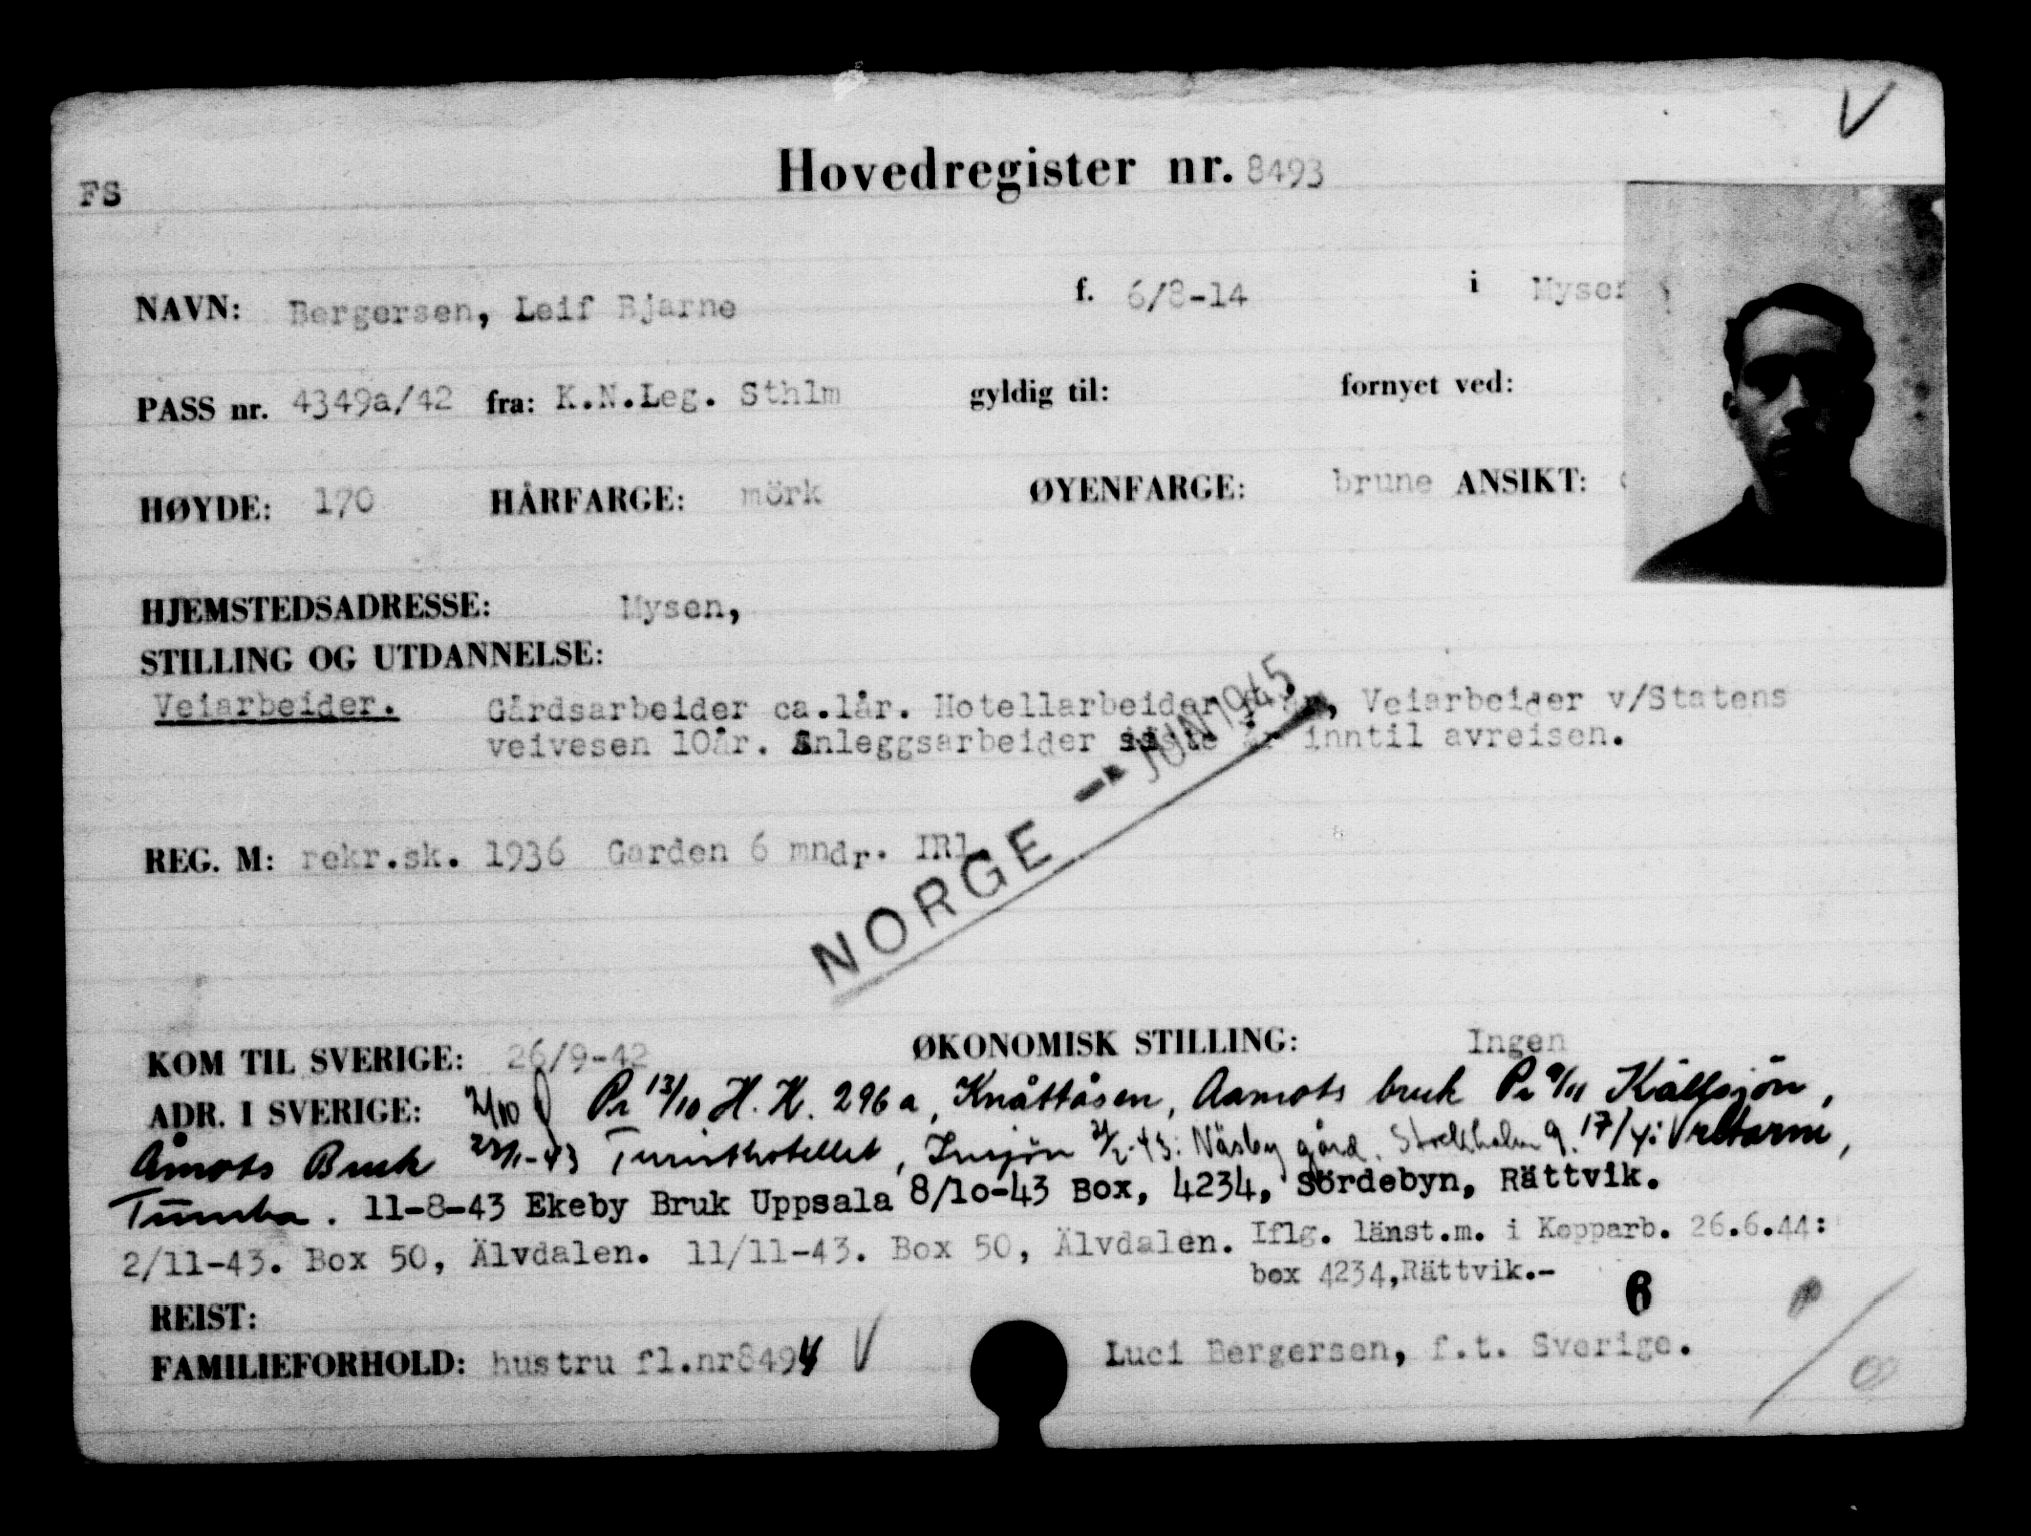 V
Hovedregister nr. 8493
FS
NAVN: Bergersen, Leif Bjarne f. 6/8-14 i Mysen
PASS nr. 4349a/42 fra: K.N.Leg. Sthlm gyldig til: fornyet ved:
HØYDE: 170 HÅRFARGE: mörk ØYENFARGE: brune ANSIKT:
HJEMSTEDSADRESSE: Mysen,
STILLING OG UTDANNELSE:
Veiarbeider. Gårdsarbeider ca.1år. Hotellarbeider Veiarbeider v/Statens
veivesen 10år. Anleggsarbeider siste år inntil avreisen.
NORGE JUNI 1945
REG. M: rekr.sk. 1936 Garden 6 mndr. IR1.
KOM TIL SVERIGE: 26/9-42 ØKONOMISK STILLING: Ingen
ADR. I SVERIGE: 2/10 Pr 13/10 H.K. 296a, Knåttåsen, Aamots bruk Pr 9/11 Källsjön,
Åmots Bruk 23/1-43 Turisthotellet, Insjön 2/2-43: Näsby gård. Stockholm 9. 17/4: Vretarne,
Tumba. 11-8-43 Ekeby Bruk Uppsala 8/10-43 Box, 4234, Sördebyn, Rättvik.
2/11-43. Box 50, Älvdalen. 11/11-43. Box 50, Älvdalen. Iflg. länst.m. i Kopparb. 26.6.44:
box 4234,Rättvik.-
6
REIST:
FAMILIEFORHOLD: hustru fl.nr8494 V Luci Bergersen, f.t. Sverige.